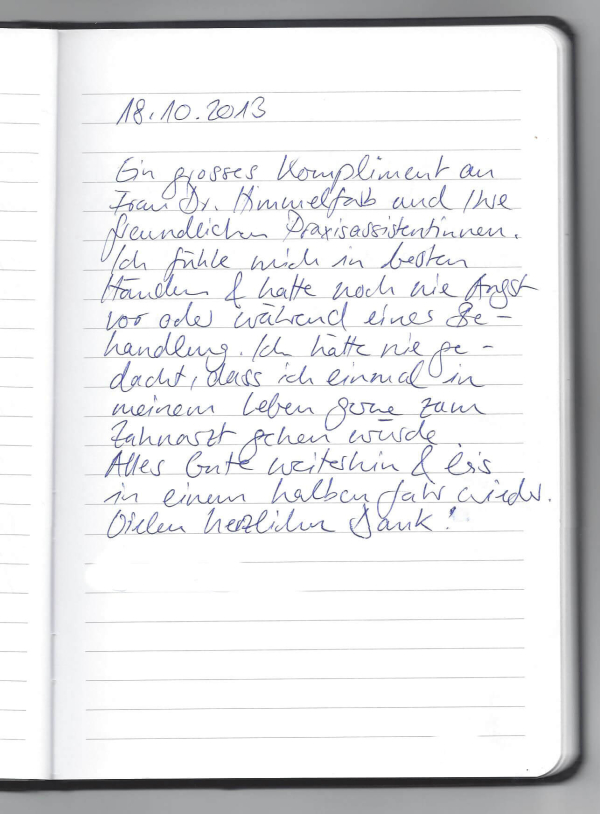 18.10.2013
Ein grosses Kompliment an
Frau Dr. Himmelfarb und Ihre
freundlichen Praxisassistentinnen.
Ich fühle mich in besten
Händen & hatte noch nie Angst
vor oder während eines Be-
handlung. Ich hätte nie ge-
dacht, dass ich einmal in
meinem Leben gerne zum
Zahnarzt gehen würde.
Alles Gute weiterhin & bis
in einem halben Jahr wieder.
Vielen herzlichen Dank!